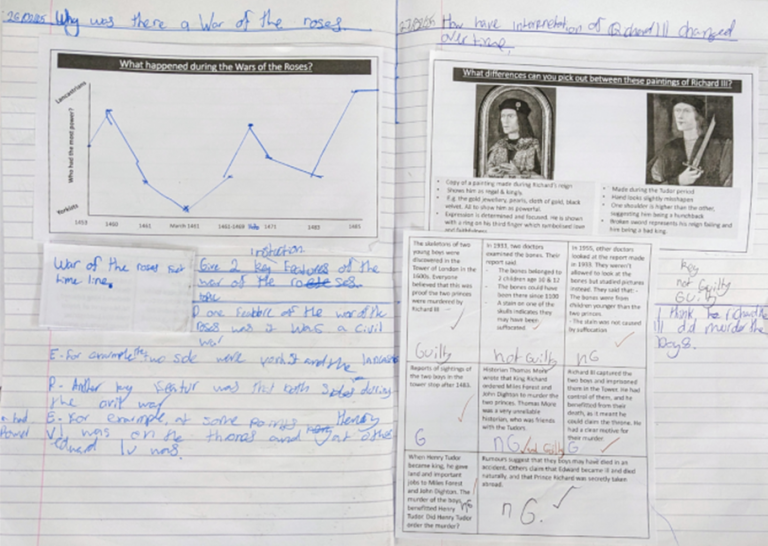 Why was there a War of the roses.
What happened during the Wars of the Roses?
Lancastrians
Who had the most power?
Yorkists
1453
1460
1461
March 1461
1471
1483
1485
War of the roses
time line.
Give 2 key features of the
war of the roses.
one
of the war of the
roses was it was a civil
war
E-For example the two side were yorkist and the
key
was that both sides
the civil war
E- For example, at some points Henry
VI was on the and at other
IV was.
How have interpretation of Richard III changed
over time.
What differences can you pick out between these paintings of Richard III?
• Copy of a painting made during Richard's reign
• Shows him as regal & kingly.
• E.g. the gold jewellery, pearls, cloth of gold, black
velvet. All to show him as powerful.
• Expression is determined and focused. He is shown
with a ring on his third finger which symbolised love
and faithfulness
• Made during the Tudor period
• Hand looks slightly misshapen
• One shoulder is higher than the other,
suggesting him being a hunchback
• Broken sword represents his reign failing and
him being a bad king.
The skeletons of two
young boys were
discovered in the
Tower of London in the
1600s. Everyone
believed that this was
proof the two princes
were murdered by
Richard III
Guilty
In 1933, two doctors
examined the bones. Their
report said:
- The bones belonged to
2 children age 10 & 12
- The bones could have
been there since 1100
- A stain on one of the
skulls indicates they
may have been
suffocated
not Guilty
In 1955, other doctors
looked at the report made
in 1933. They weren't
allowed to look at the
bones but studied pictures
instead. They said that:
- The bones were from
children younger than the
two princes.
- The stain was not caused
by suffocation
nG
Key
not Guilty
Guilty
I think, he richard the
III did murder the
boys.
Reports of sightings of
the two boys in the
tower stop after 1483.
G
Historian Thomas More
wrote that King Richard
ordered Miles Forest and
John Dighton to murder the
two princes. Thomas More
was a very unreliable
historian, who was friends
with the Tudors.
nG
Richard III captured the
two boys and imprisoned
them in the Tower. He had
control of them, and he
benefitted from their
death, as it meant he
could claim the throne. He
had a clear motive for
their murder.
G
When Henry Tudor
became king, he gave
land and important
jobs to Miles Forest
and John Dighton. The
murder of the boys
benefitted Henry
Tudor. Did Henry Tudor
order the murder?
nG
Rumours suggest that they boys may have died in an
accident. Others claim that Edward became ill and died
naturally, and that Prince Richard was secretly taken
abroad.
nG.